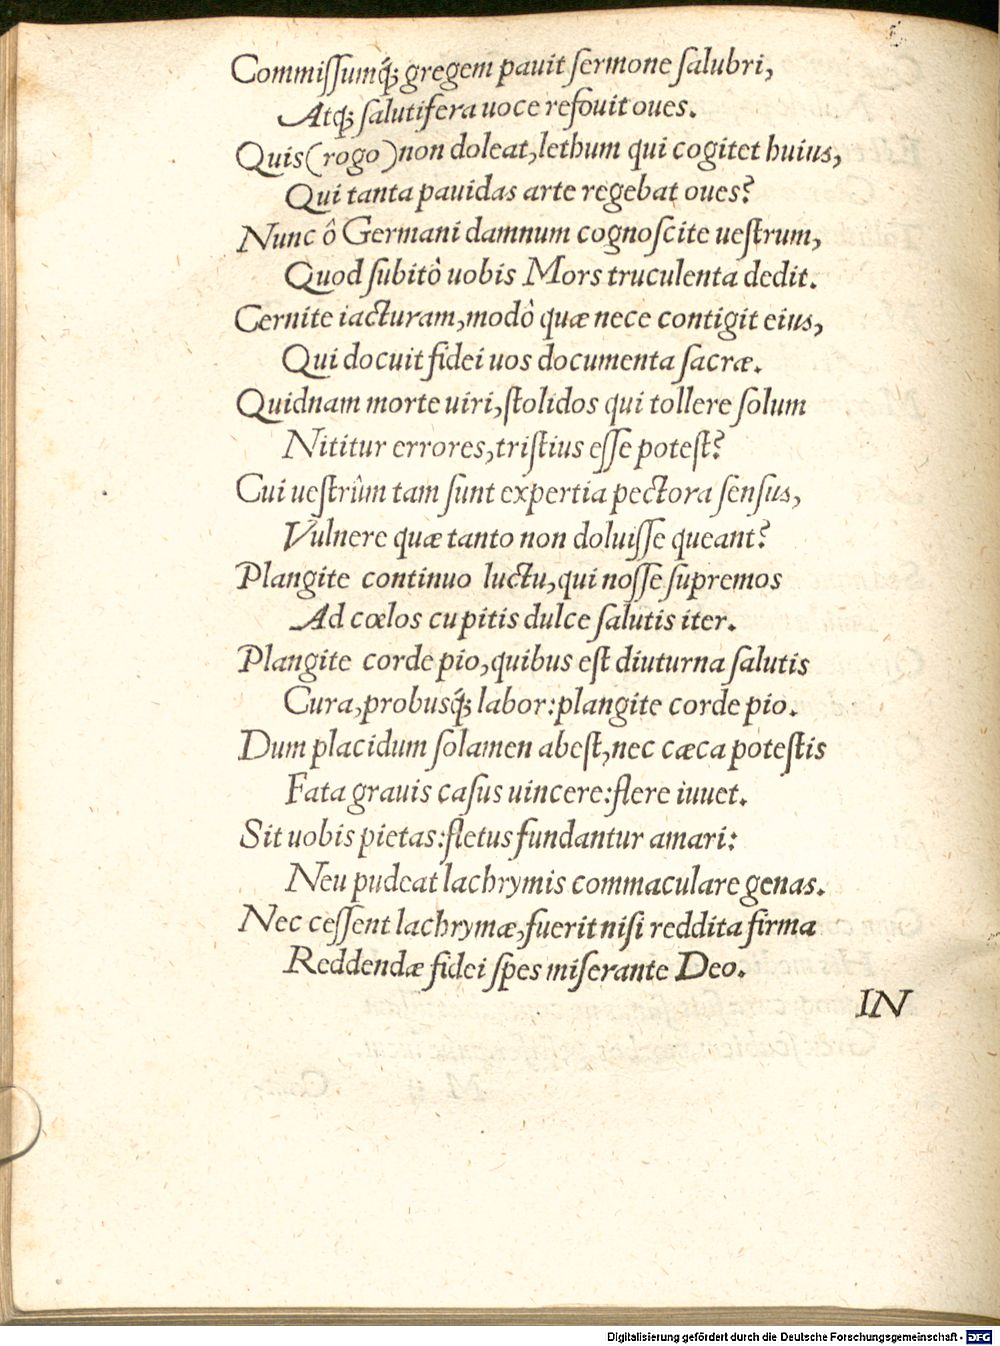 Commiſſumq́ꝫ gregem pauit ſermone ſalubri,
Atqꝫ ſalutifera uoce refouit oues.
Quis (rogo) non doleat, lethum qui cogitet huius,
Qui tanta pauidas arte regebat oues?
Nunc ô Germani damnum cognoſcite ueſtrum,
Quod ſubitò uobis Mors truculenta dedit.
Cernite iacturam, modò quæ nece contigit eius,
Qui docuit fidei uos documenta ſacræ.
Quidnam morte uiri, ſtolidos qui tollere ſolum
Nititur errores, triſtius eſſe poteſt?
Cui ueſtrûm tam ſunt expertia pectora ſenſus,
Vulnere quæ tanto non doluiſſe queant?
Plangite continuo luctu, qui noſſe ſupremos
Ad cœlos cupitis dulce ſalutis iter.
Plangite corde pio, quibus eſt diuturna ſalutis
Cura, probusq́ꝫ labor: plangite corde pio.
Dum placidum ſolamen abeſt, nec cæca poteſtis
Fata grauis caſus uincere: flere iuuet.
Sit uobis pietas: fletus fundantur amari:
Neu pudeat lachrymis commaculare genas.
Nec ceſſent lachrymæ, fuerit niſi reddita firma
Reddendæ fidei ſpes miſerante Deo.
IN
Digitalisierung gefördert durch die Deutsche Forschungsgemeinschaft - DFG